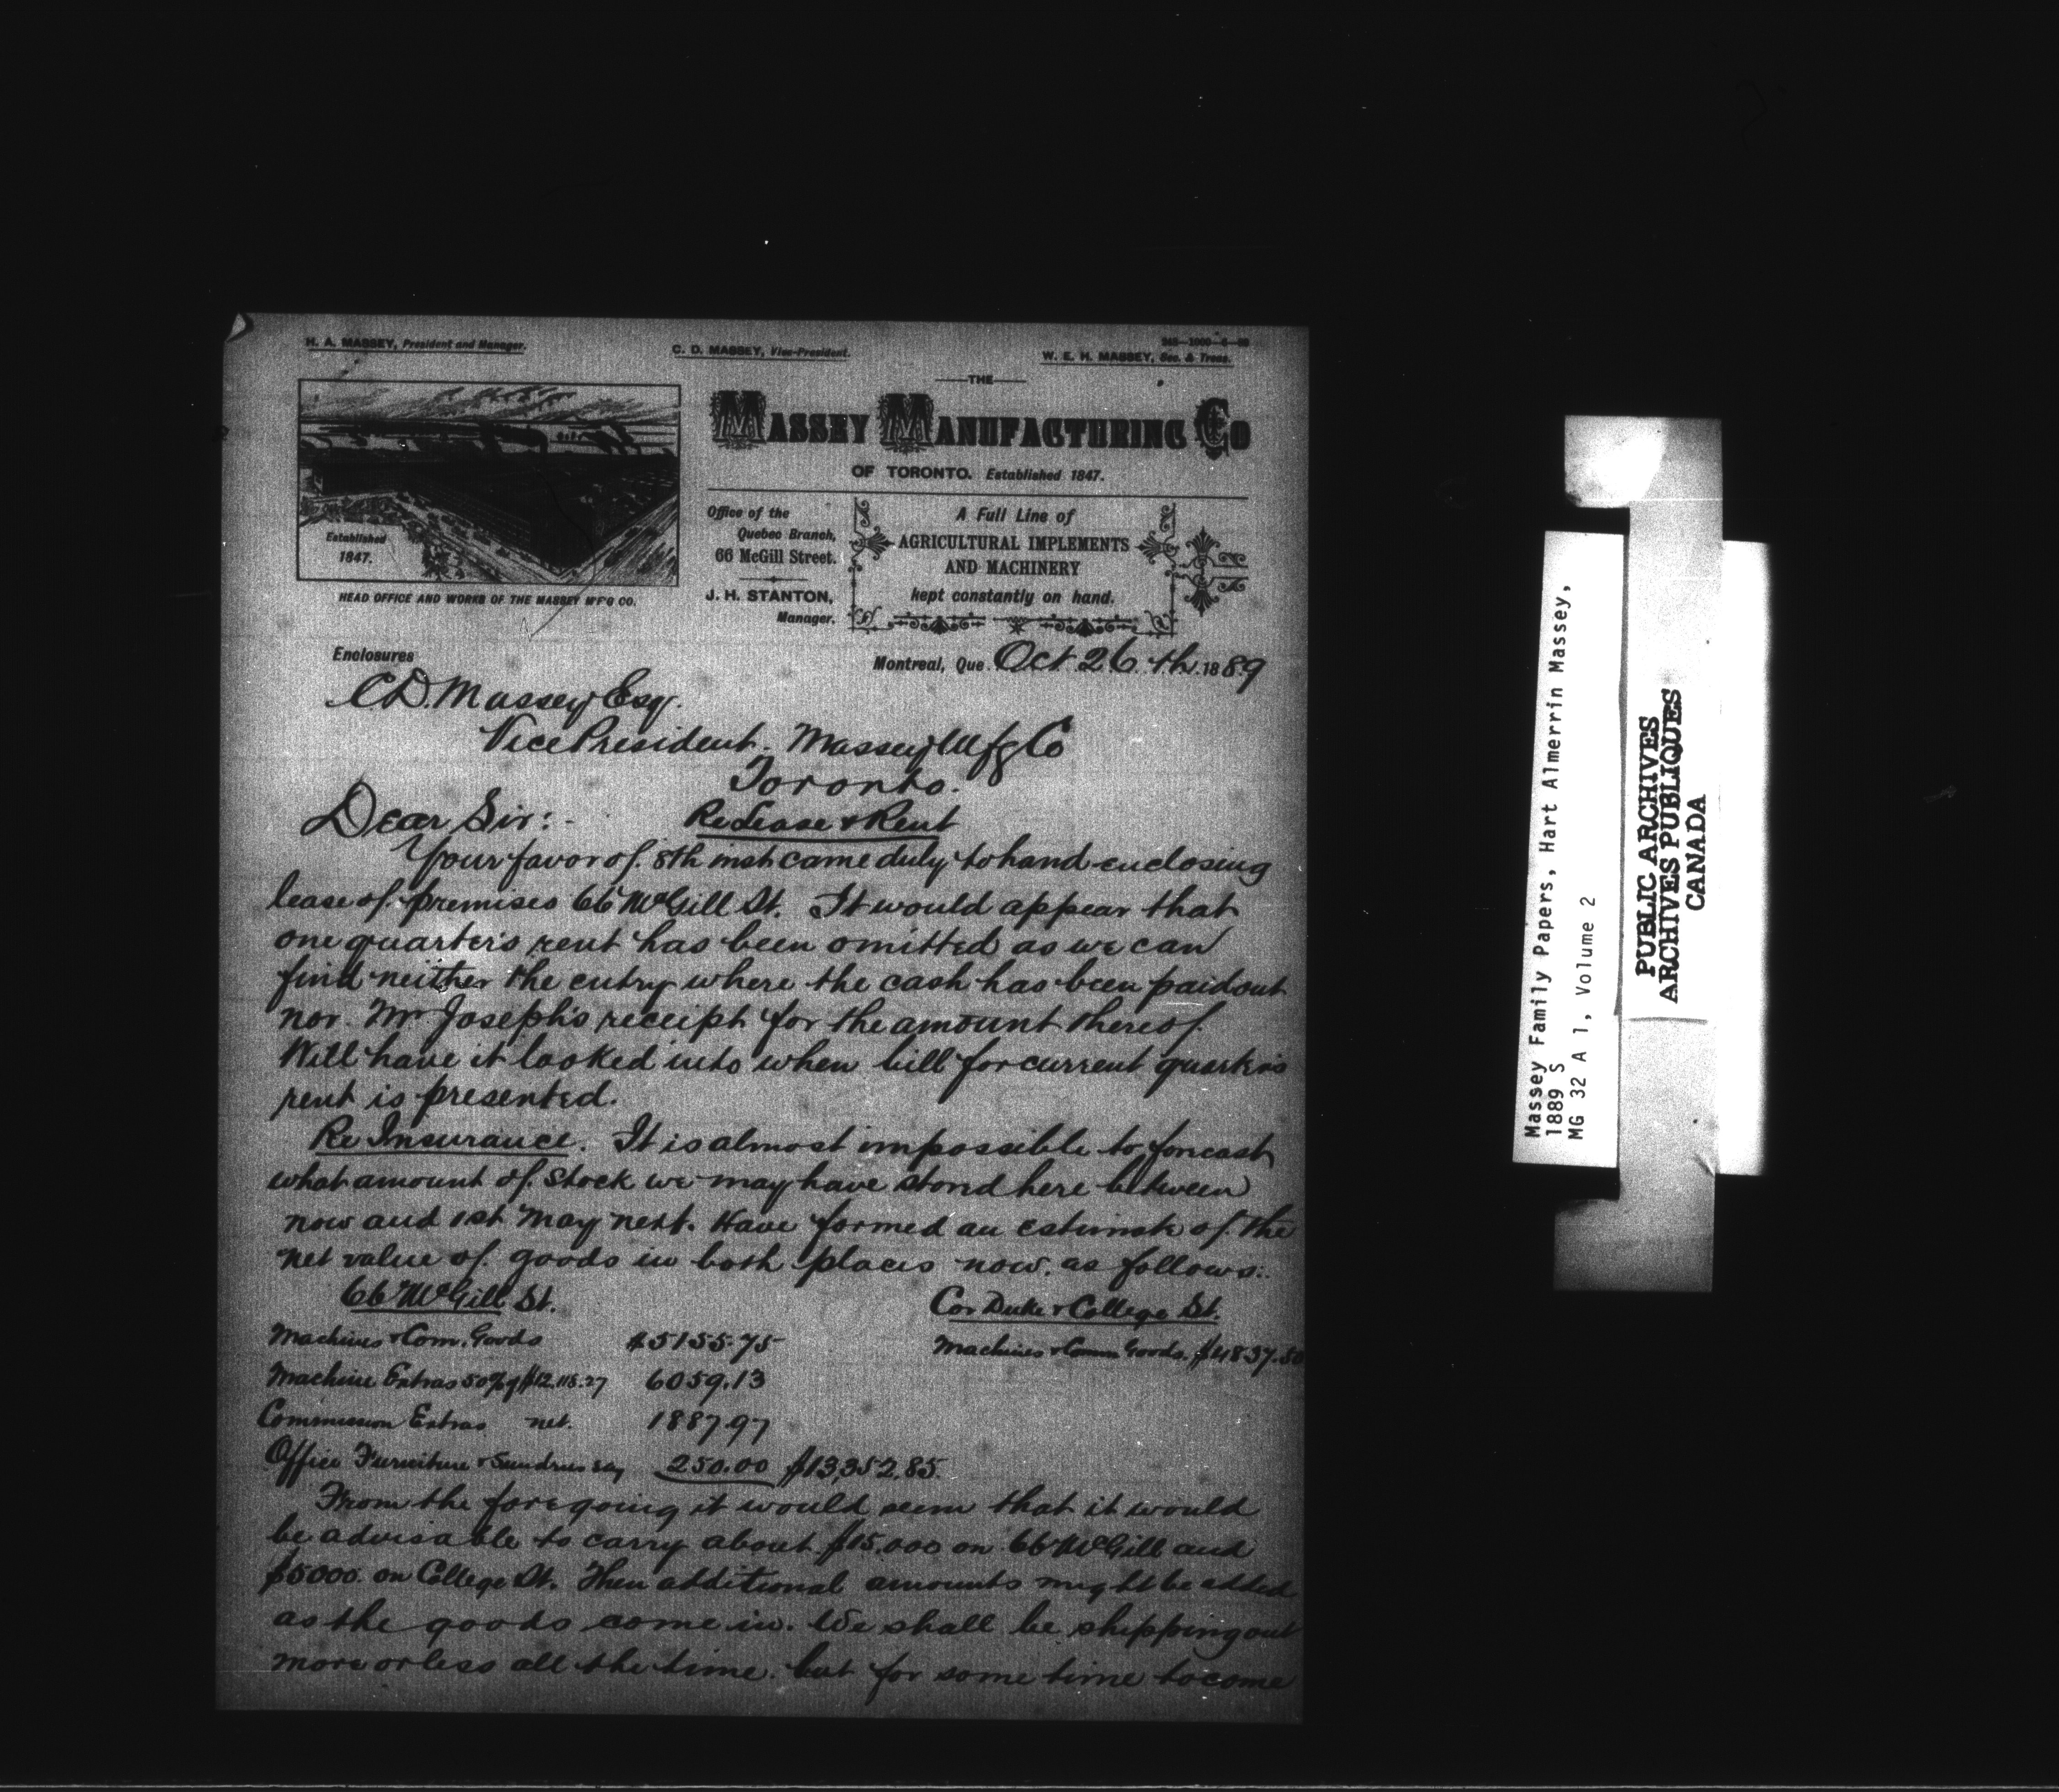 H. A. MASSEY, President and Manager.
C. D. MASSEY, Vice-President.
W. E. H. MASSEY, Sec. & Treas.
THE
MASSEY MANUFACTURING CO
OF TORONTO. Established 1847.
Established
1847.
HEAD OFFICE AND WORKS OF THE MASSEY M'F'G CO.
Office of the
Quebec Branch,
66 McGill Street.
J. H. STANTON,
Manager.
A Full Line of
AGRICULTURAL IMPLEMENTS
AND MACHINERY
kept constantly on hand.
Enclosures
Montreal, Que. Oct. 26. th. 1889
C D. Massey Esq.
Vice President. Massey Mfg Co
Toronto.
Dear Sir:-
Re Lease & Rent
Your favor of 8th inst came duly to hand enclosing
lease of premises 66 McGill St. It would appear that
one quarter's rent has been omitted as we can
find neither the entry where the cash has been paid out
nor Mr Joseph's receipt for the amount thereof.
Will have it looked into when bill for current quarter's
rent is presented.
Re Insurance. It is almost impossible to forecast
what amount of stock we may have stored here between
now and 1st May next. Have formed an estimate of the
net value of goods in both places now. as follows:-
66 McGill St.
Cor Duke & College St.
Machines & Com. Goods $5155.75
Machines & Comm Goods. $4837.50
Machine Extras 50% of $12.118.27 6059.13
Commission Extras net. 1887.97
Office Furniture & Sundries say 250.00 $13,352.85.
From the foregoing it would seem that it would
be advisable to carry about $15.000 on 66 McGill and
$5000. on College St. Then additional amounts might be added
as the goods come in. We shall be shipping out
more or less all the time. but for some time to come
Massey Family Papers, Hart Almerrin Massey,
1889 S
MG 32 A 1, Volume 2
PUBLIC ARCHIVES
ARCHIVES PUBLIQUES
CANADA